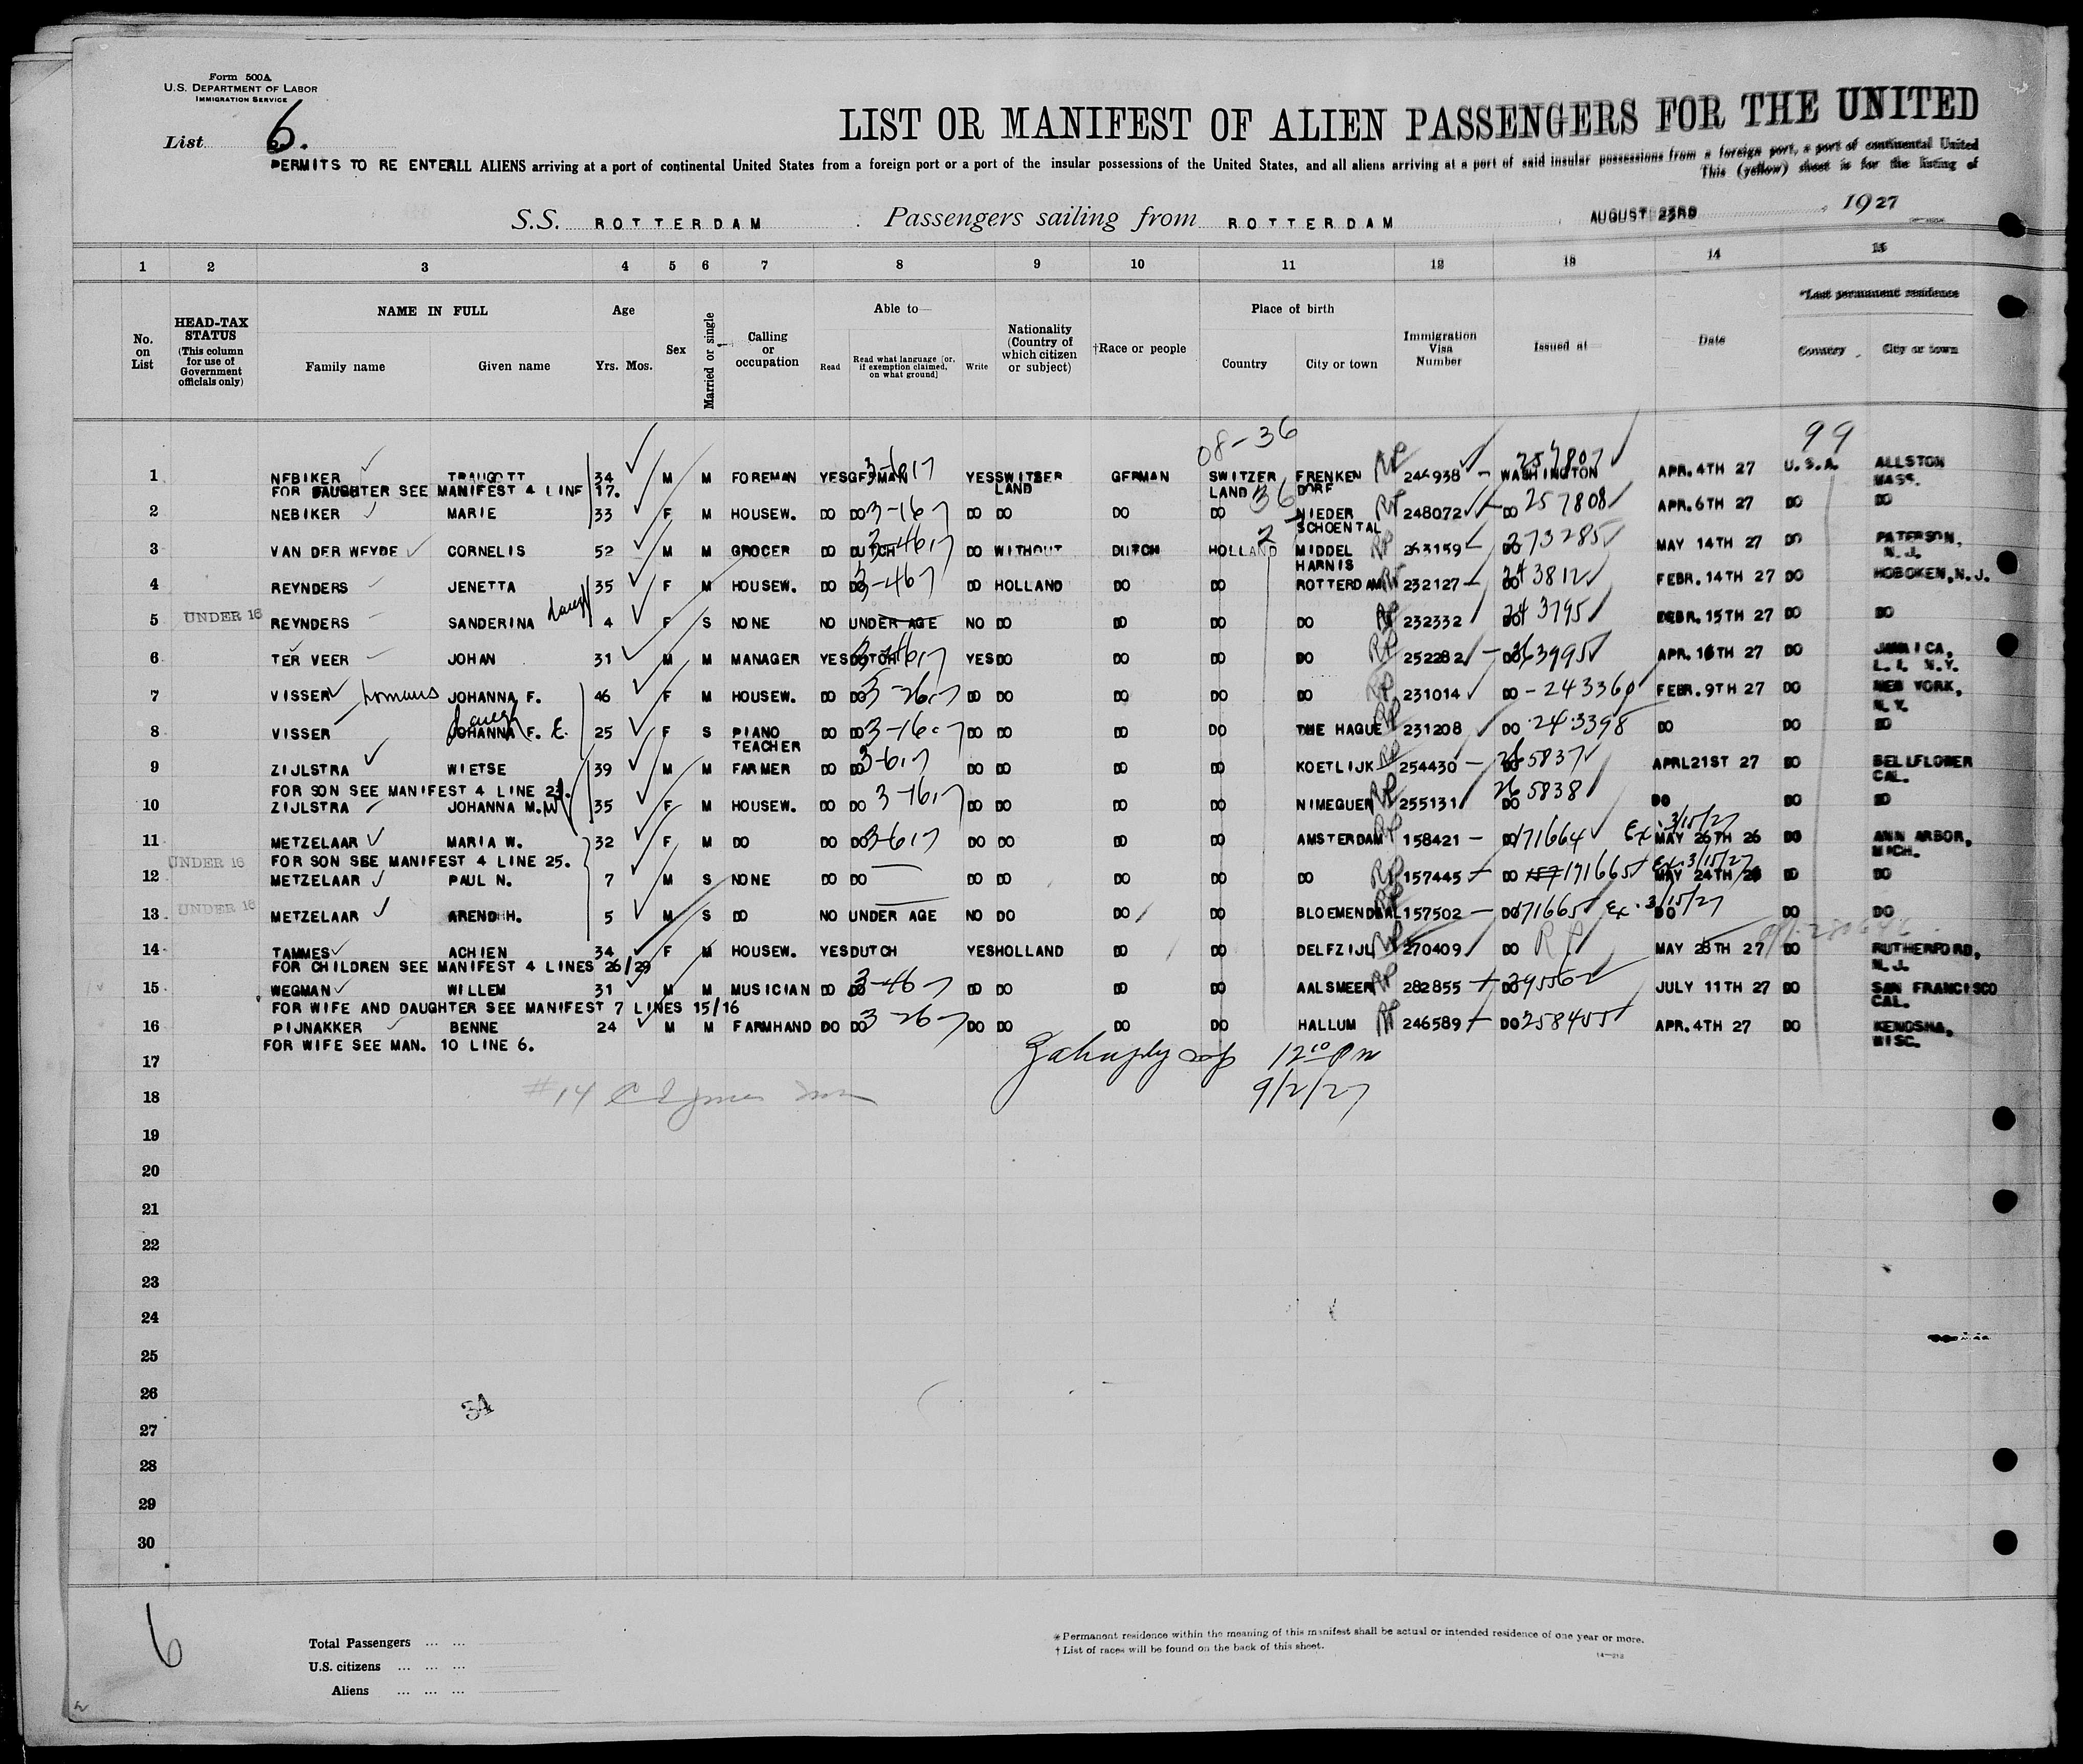 Form 500A
U.S. DEPARTMENT OF LABOR
IMMIGRATION SERVICE
List 6.
LIST OR MANIFEST OF ALIEN PASSENGERS FOR THE UNITED
PERMITS TO RE ENTERLL ALIENS arriving at a port of continental United States from a foreign port or a port of the insular possessions of the United States, and all aliens arriving at a port of said insular possessions from a foreign port, a port of continental United
This (yellow) sheet is for the listing of
S.S. ROTTERDAM Passengers sailing from ROTTERDAM, AUGUST 23RD, 1927
1 2 3 4 5 6 7 8 9 10 11 12 13 14 15
No. on List
HEAD-TAX STATUS (This column for use of Government officials only)
NAME IN FULL
Family name Given name
Age
Yrs. Mos.
Sex
Married or single
Calling or occupation
Able to—
Read
Read what language [or, if exemption claimed, on what ground]
Write
Nationality (Country of which citizen or subject)
†Race or people
Place of birth
Country City or town
Immigration Visa Number
Issued at—
Date
*Last permanent residence
Country City or town
08-36 99
1 NEBIKER TRAUGOTT 34 M M FOREMAN YES GERMAN YES SWITZER LAND GERMAN SWITZER LAND FRENKEN DORF RP 246938 - WASHINGTON 257807 APR. 4TH 27 U.S.A. ALLSTON MASS.
FOR DAUGHTER SEE MANIFEST 4 LINE 17.
2 NEBIKER MARIE 33 F M HOUSEW. DO DO 3-16 7 DO DO DO DO 36 NIEDER SCHOENTAL RP 248072 DO 257808 APR. 6TH 27 DO DO
3 VAN DER WEYDE CORNELIS 52 M M GROCER DO DUTCH DO WITHOUT DUTCH HOLLAND 2 MIDDEL HARNIS RP 263159 - DO 273285 MAY 14TH 27 DO PATERSON, N.J.
4 REYNDERS JENETTA 35 F M HOUSEW. DO DO 3-46 7 DO HOLLAND DO DO ROTTERDAM RP 232127 - DO 243812 FEBR. 14TH 27 DO HOBOKEN, N.J.
5 UNDER 16 REYNDERS SANDERINA daug 4 F S NONE NO UNDER AGE NO DO DO DO DO RP 232332 DO 243795 FEBR. 15TH 27 DO DO
6 TER VEER JOHAN 31 M M MANAGER YES DUTCH YES DO DO DO DO RP 252282 - DO 263995 APR. 16TH 27 DO JAMAICA, L.I. N.Y.
7 VISSER JOHANNA F. 46 F M HOUSEW. DO DO 3-26 7 DO DO DO DO DO RP 231014 DO - 243360 FEBR. 9TH 27 DO NEW YORK, N.Y.
8 VISSER daug JOHANNA F. E. 25 F S PIANO TEACHER DO DO 3-16 7 DO DO DO DO THE HAGUE RP 231208 DO 243398 DO DO DO
9 ZIJLSTRA WIETSE 39 M M FARMER DO DO DO DO DO DO KOETLIJK RP 254430 - DO 265837 APRL 21ST 27 DO BELLFLOWER CAL.
FOR SON SEE MANIFEST 4 LINE 23.
10 ZIJLSTRA JOHANNA M. W 35 F M HOUSEW. DO DO 3-16 7 DO DO DO DO NIMEGUEN RP 255131 DO 265838 DO DO DO
11 METZELAAR MARIA W. 32 F M DO DO DO DO DO DO DO AMSTERDAM RP 158421 - DO 171664 Ex. 3/15/27 MAY 26TH 26 DO ANN ARBOR, MICH.
FOR SON SEE MANIFEST 4 LINE 25.
12 UNDER 16 METZELAAR PAUL N. 7 M S NONE DO DO DO DO DO DO DO RP 157445 - DO 171665 Ex. 3/15/27 MAY 24TH 26 DO DO
13 UNDER 16 METZELAAR AREND H. 5 M S DO NO UNDER AGE NO DO DO DO BLOEMENDAAL 157502 - DO 171665 Ex. 3/15/27 DO DO DO
14 TAMMES ACHIEN 34 F M HOUSEW. YES DUTCH YES HOLLAND DO DO DELFZIJL RP 270409 DO RP MAY 28TH 27 DO RUTHERFORD, N.J.
FOR CHILDREN SEE MANIFEST 4 LINES 26/29
15 WEGMAN WILLEM 31 M M MUSICIAN DO DO 3-46 7 DO DO DO DO AALSMEER RP 282855 DO JULY 11TH 27 DO SAN FRANCISCO CAL.
FOR WIFE AND DAUGHTER SEE MANIFEST 7 LINES 15/16
16 PIJNAKKER BENNE 24 M M FARMHAND DO DO 3-26 7 DO DO DO DO HALLUM RP 246589 DO 258455 APR. 4TH 27 DO KENOSHA, WISC.
FOR WIFE SEE MAN. 10 LINE 6.
17 12 10 PM
18 #14 9/2/27
19
20
21
22
23
24
25
26
27
28
29
30
6
Total Passengers ... ...
U.S. citizens ... ... ...
Aliens ... ... ...
*Permanent residence within the meaning of this manifest shall be actual or intended residence of one year or more.
† List of races will be found on the back of this sheet.
14—213